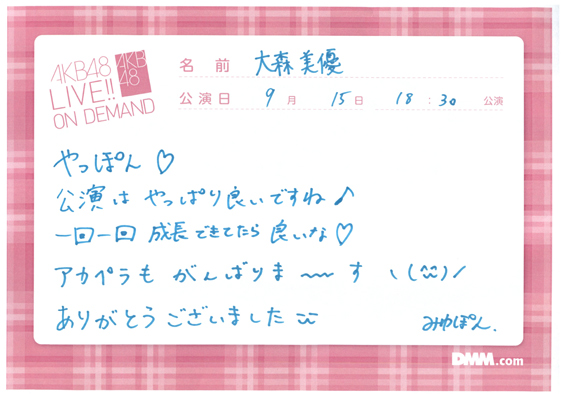 AKB48
LIVE!!
ON DEMAND
AKB
48
名 前 大森美優
公演日 9月 15日 18:30 公演
やっぽん♡
公演は やっぱり良いですね♪
一回一回 成長できてたら 良いな♡
アカペラも がんばりま〜〜す ヽ(^^)ノ
ありがとうございました
みゆぽん.
DMM.com